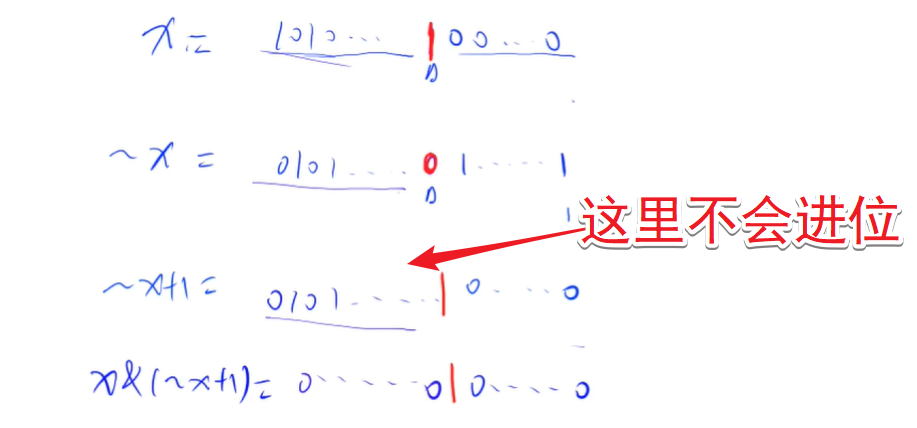 x = 1010... 1 00...0
n
~x = 0101.... 0 1.....1
n
1
这里不会进位
~x+1 = 0101...... 1 0.....0
x&(~x+1)= 0......0 1 0.....0